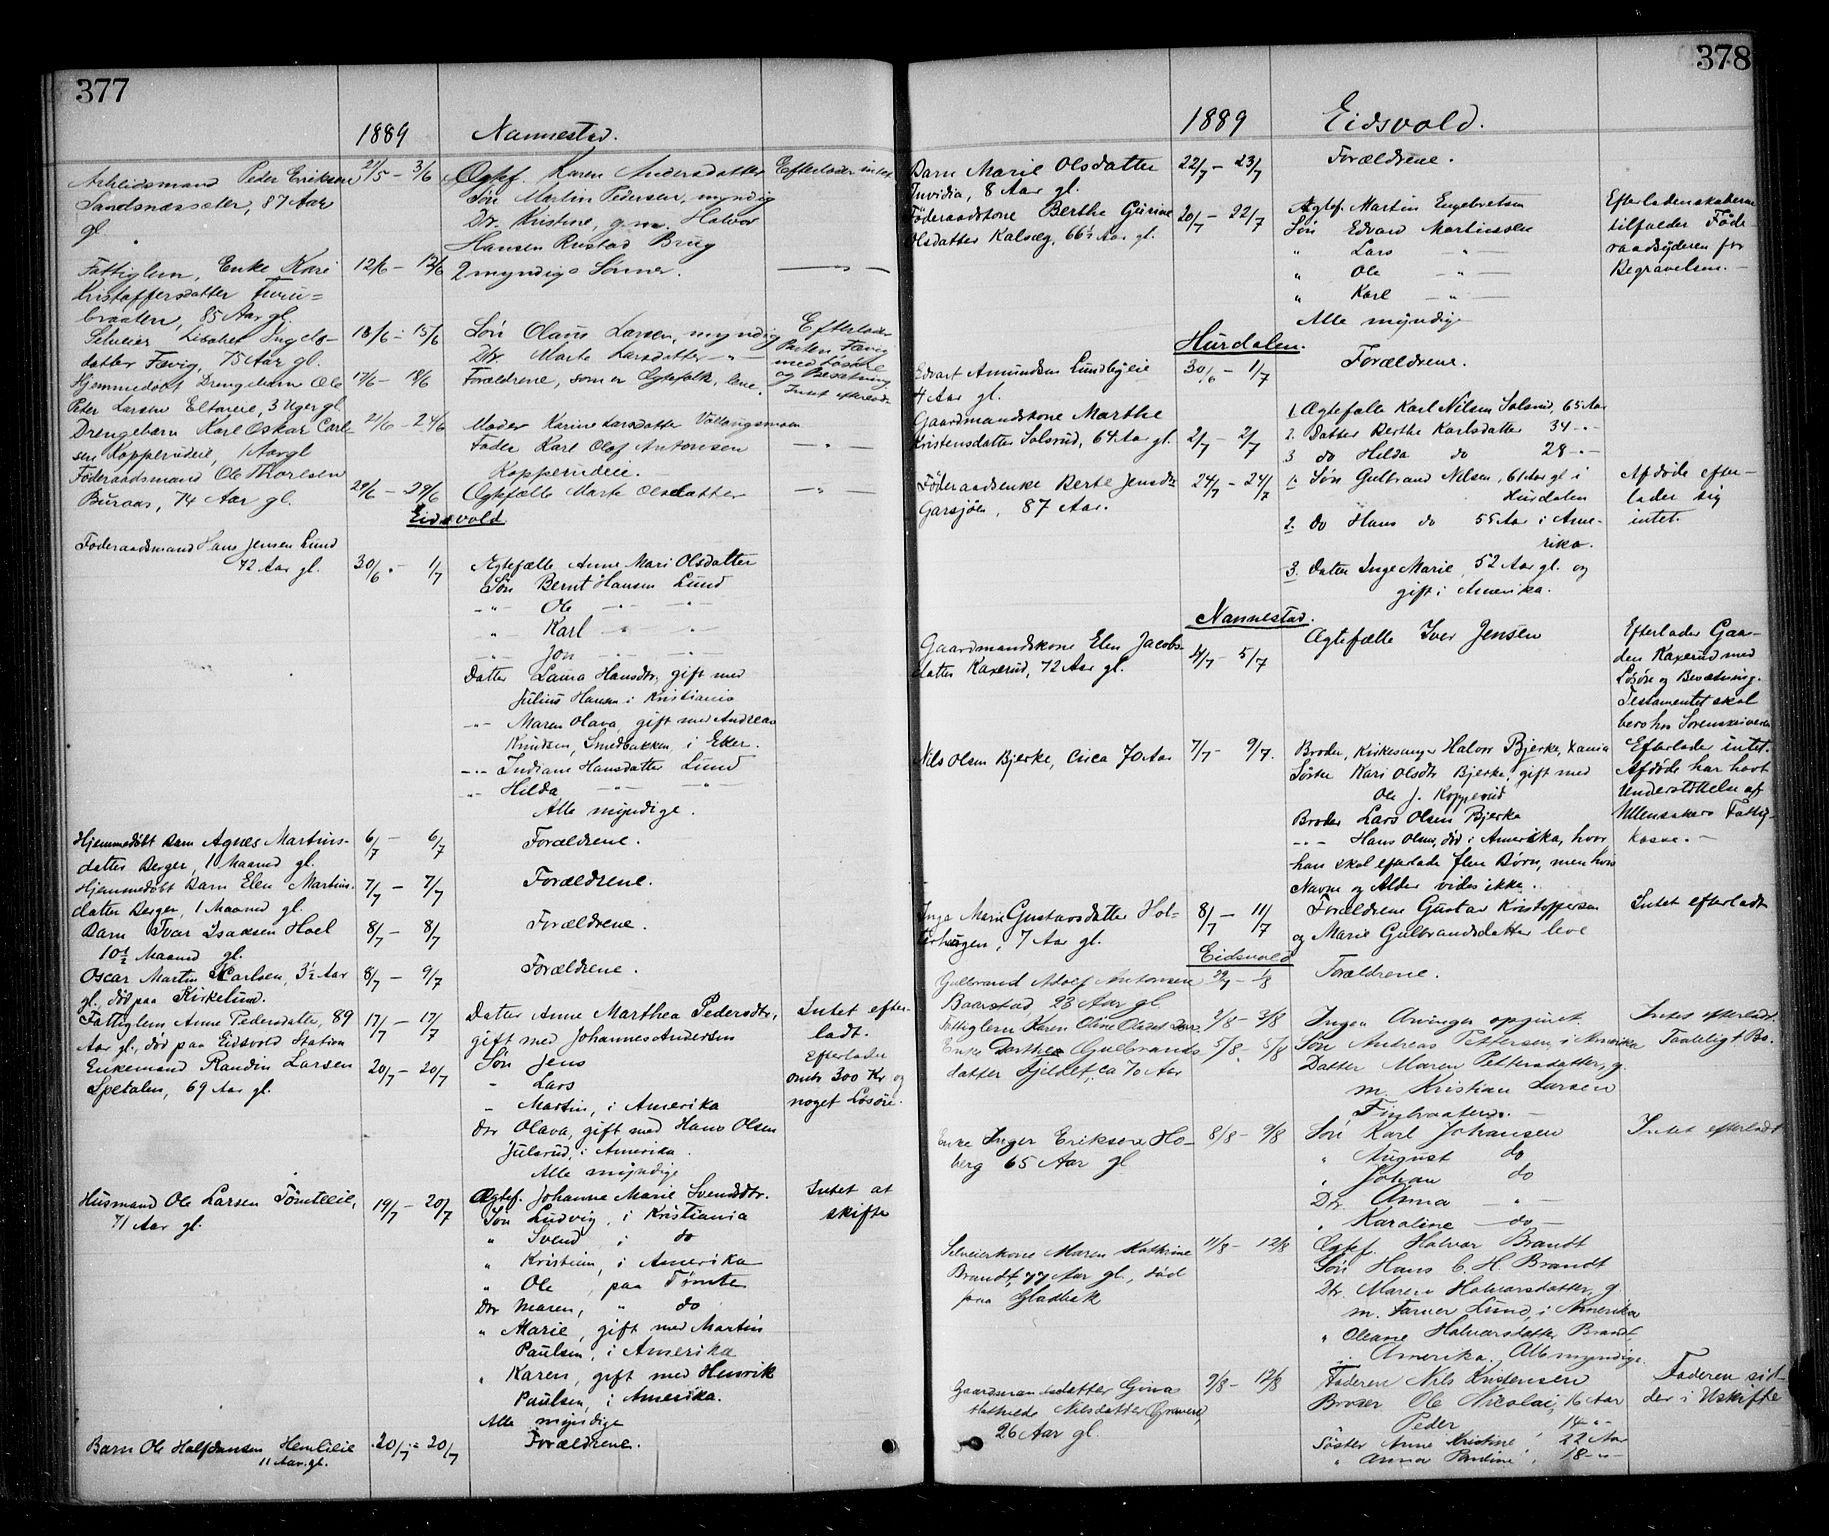 377
1889 Nannestad.
Arbeidsmand Peder Eriksen 27/5 – 3/6 Ægtef. Karen Andersdatter Efterlader intet
Sandsnæsseter, 87 Aar Søn Martin Pedersen, myndig
gl. Dr. Kristine, g.m. Halvor
Hansen Rustad Brug
Fattiglem, Enke Kari 12/6 – 12/6 2 myndige Sønner. — " —
Kristoffersdatter Furu=
braaten, 85 Aar gl.
Selveier Lisabet Ingels- 13/6 – 15/6 Søn Olaus Larsen, myndig Efterlader
datter Fævig, 75 Aar gl. Dtr. Marte Larsdatter – " – Parten Fævig
med Løsøre
og Besætning
Hjemmedøbt Drengebarn Ole 17/6 – 18/6 Forældrene, som er Ægtefolk, leve. Intet efterladt
Peter Larsen Eltoneie, 3 Uger gl.
Drengebarn Karl Oskar Carl- 21/6 – 24/6 Moder Karine Larsdatter Vollaugsmoen
sen Kopperudeie, 1 Aar gl Fader Karl Olof Antonsen — " —
Kopperudeie.
Føderaadsmand Ole Thorlsen
Buraas, 74 Aar gl. 29/6 – 29/6 Ægtefælle Marte Olsdatter — " —
Eidsvold
Føderaadsmand Hans Jensen Lund
72 Aar gl. 30/6 – 1/7 Ægtefælle Anne Mari Olsdatter
Søn Bernt Hansen Lund
– " – Ole – " – – " –
" Karl – " – – " –
– " – Jon – " – – " –
Datter Laura Hansdtr, gift med
Julius Hansen i Kristiania
– " – Maren Olava, gift med Andreas
Knudsen, Smedbakken, i Eker.
– " – Indiane Hansdatter Lund
– " – Hilda – " – – " –
Alle myndige.
Hjemmedøbt Barn Agnes Martins- 6/7 – 6/7 Forældrene.
datter Berger, 1 Maaned gl.
Hjemmedøbt Barn Elen Martins- 7/7 – 7/7 Forældrene.
datter Berger, 1 Maaned gl.
Barn Ivar Isaksen Hoel 8/7 – 8/7 Forældrene.
10½ Maaned gl.
Oscar Martin Karlsen, 3½ Aar 8/7 – 9/7 Forældrene.
gl., død paa Kirkelund.
Fattiglem Anne Pedersdatter, 89 17/7 – 17/7 Datter Anne Marthea Pedersdtr, Intet efter-
Aar gl., død paa Eidsvold Station gift med Johannes Andersen ladt.
Enkemand Randin Larsen 20/7 – 20/7 Søn Jens Efterlader
Spetalen, 69 Aar gl. – Lars omtr 300 Kr og
– Martin, i Amerika noget Løsøre.
Dtr Olava, gift med Hans Olsen
Julsrud, i Amerika.
Alle myndige
Husmand Ole Larsen Tømteeie, 19/7 – 20/7 Ægtef. Johanne Marie Svendsdtr. Intet at
71 Aar gl. Søn Ludvig, i Kristiania skifte
" Svend i do
" Kristian, i Amerika
" Ole, paa Tømte
Dtr Maren, " do
" Marie, gift med Martin
Paulsen, i Amerika
" Karen, gift med Henrik
Paulsen, i Amerika.
Alle myndige
Barn Ole Halfdansen Hemlieie 20/7 – 20/7 Forældrene.
11 Aar gl.
378
1889 Eidsvold.
Barn Marie Olsdatter 22/7 – 23/7 Forældrene.
Invidia, 8 Aar gl.
Føderaadskone Berthe Gurine 20/7 – 22/7 Ægtef. Martin Engebretsen Efterladenskaberne
Olsdatter Kalvæg, 66½ Aar gl. Søn Edvard Martinsen tilfalder Føde-
" Lars – " – raadsyderen for
" Ole – " – Begravelsen. –
" Karl – " –
Alle myndige
Hurdalen.
Edvart Amundsen Lundbyeie 30/6 – 1/7 Forældrene.
4 Aar gl.
Gaardmandskone Marthe 1. Ægtefælle Karl Nilsen Solsrud, 65 Aar
Kristensdatter Solsrud, 64 Aar gl. 2/7 – 2/7 2. Datter Berthe Karlsdatter 34 – " –
3 do Hilda do 28 – " –
Føderaadsenke Berte Jensdtr 24/7 – 24/7 1. Søn Gulbrand Nilsen, 61 Aar gl i Afdøde efter-
Garsjøen, 87 Aar. Hurdalen lader sig
2. Do Hans do 55 Aar i Ame- intet.
rika.
3. Datter Inge Marie, 52 Aar gl. og
gift i Amerika.
Nannestad.
Gaardmandskone Elen Jacobs- 4/7 – 5/7 Ægtefælle Iver Jensen Efterlader Gaar-
datter Kaxerud, 72 Aar gl. den Kaxerud med
Løsøre og Besætning.
Testamentet skal
bero hos Sorenskriveren
Nils Olsen Bjerke, circa 70 Aar 7/7 – 9/7. Broder, Kirkesanger Halvor Bjerke, Xania Efterlader intet.
Søster Kari Olsdtr Bjerke, gift med Afdøde har havt
Ole J. Kopperud Understøttelse af
Broder Lars Olsen Bjerke Ullensakers Fattig-
– " – Hans Olsen, død i Amerika, hvor kasse. –
han skal efterlade flere Børn, men hvis
Navne og Alder vides ikke.
Inga Marie Gustavsdatter Hol- 8/7 – 11/7 Forældrene Gustav Kristoffersen Intet efterladt
terhagen, 7 Aar gl. og Marie Gulbrandsdatter leve
Eidsvold
Gulbrand Adolf Antonsen 29/7 – 1/8 Forældrene.
Baarstad 23 Aar gl.
Fattiglem Karen Oline Olsdat 2/8 – 3/8 Ingen Arvinger opgivet. Intet efterladt.
Enke Dorthea Gulbrands- 5/8 – 5/8 Søn Andreas Pettersen, i Amerika Taaleligt Bo.
datter Fjeldet, ca 70 Aar Datter Maren Pettersdatter, g.
m. Kristian Larsen
Finbraaten. –
Enke Inger Eriksen Ho- 8/8 – 9/8 Søn Karl Johansen Intet efterladt
berg 65 Aar gl " August do
" Johan do
Dtr. Anna – " –
" Karoline – do –
Selveierkone Maren Kathrine 11/8 – 12/8 Ægtef. Halvor Brandt
Brandt, 77 Aar gl., død Søn Hans C. H. Brandt
paa Gladbak Dtr. Maren Halvorsdatter, g.
m. Farver Lund, i Amerika
" Oleane Halvorsdatter Brandt,
i Amerika. Alle myndige.
Gaardmandsdatter Gina 9/8 – 12/8 Faderen Nils Kristensen Faderen sid-
Mathilde Nilsdatter 26 Aar gl. Broder Ole Nicolai, 16 Aar der i Uskifte
Peder 14 – " –
Søster Anne Kristine, 22 Aar
" Anna Pauline, 18 – " –